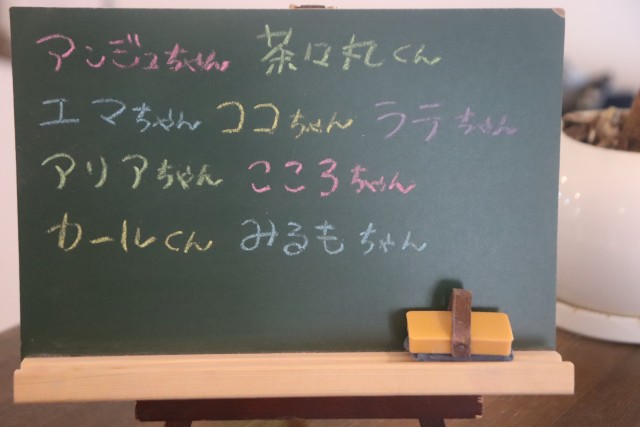 アンジュちゃん 茶々丸くん
エマちゃん ココちゃん ラテちゃん
アリアちゃん こころちゃん
カールくん みるもちゃん